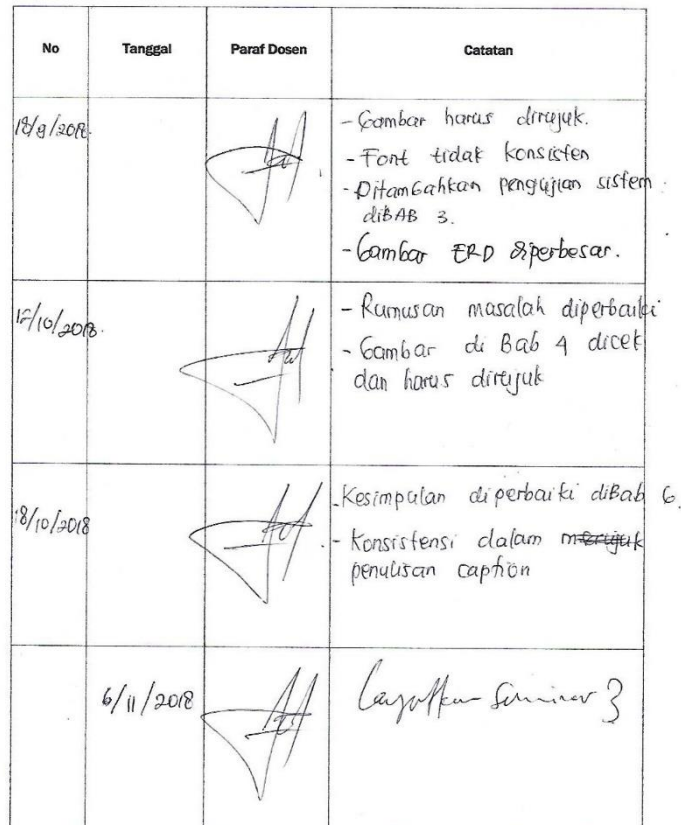 No Tanggal Paraf Dosen Catatan
18/9/2018.
- Gambar harus dirujuk.
- Font tidak konsisten
- Ditambahkan pengujian sistem
diBAB 3.
- Gambar ERD diperbesar.
12/10/2018.
- Rumusan masalah diperbaiki
- Gambar di Bab 4 dicek
dan harus dirujuk
18/10/2018
- Kesimpulan diperbaiki diBab 6.
- Konsistensi dalam merujuk
penulisan caption
6/11/2018
Lanjutkan Seminar 3